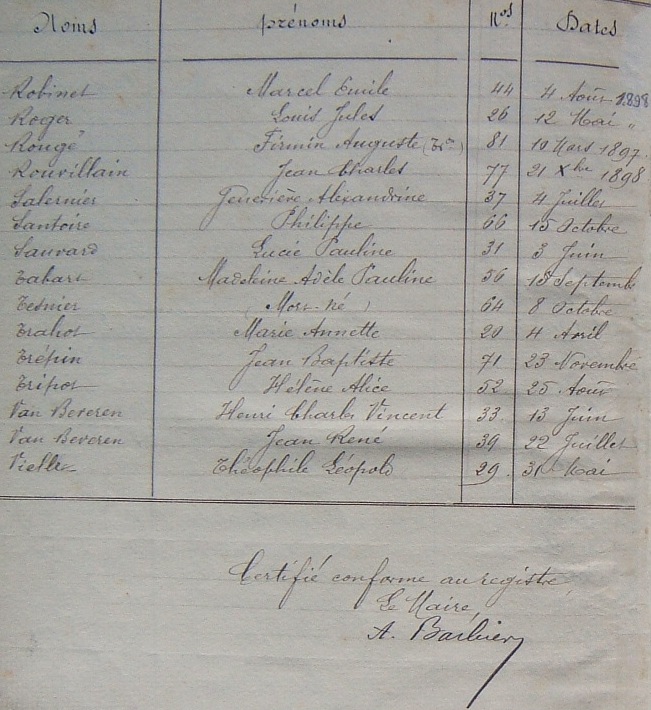 Noms prénoms Nos Dates
Robinet Marcel Emile 44 4 Août 1898
Roger Louis Jules 26 12 Mai "
Rougé Firmin Auguste (Tron) 81 10 Mars 1897.
Rouvillain Jean Charles 77 21 Xbre 1898
Salernier Geneviève Alexandrine 37 4 Juillet
Santoire Philippe 66 15 Octobre
Sauvard Lucie Pauline 31 3 Juin
Tabart Madeleine Adèle Pauline 56 15 Septemb
Tesnier (Mort-né) 64 8 Octobre
Trahot Marie Annette 20 4 Avril
Trépin Jean Baptiste 71 23 Novembre
Tripot Hélène Alice 52 25 Août
Van Beveren Henri Charles Vincent 33 13 Juin
Van Beveren Jean René 39 22 Juillet
Vielle Théophile Léopold 29 31 Mai
Certifié conforme au registre,
Le Maire,
A. Barbier